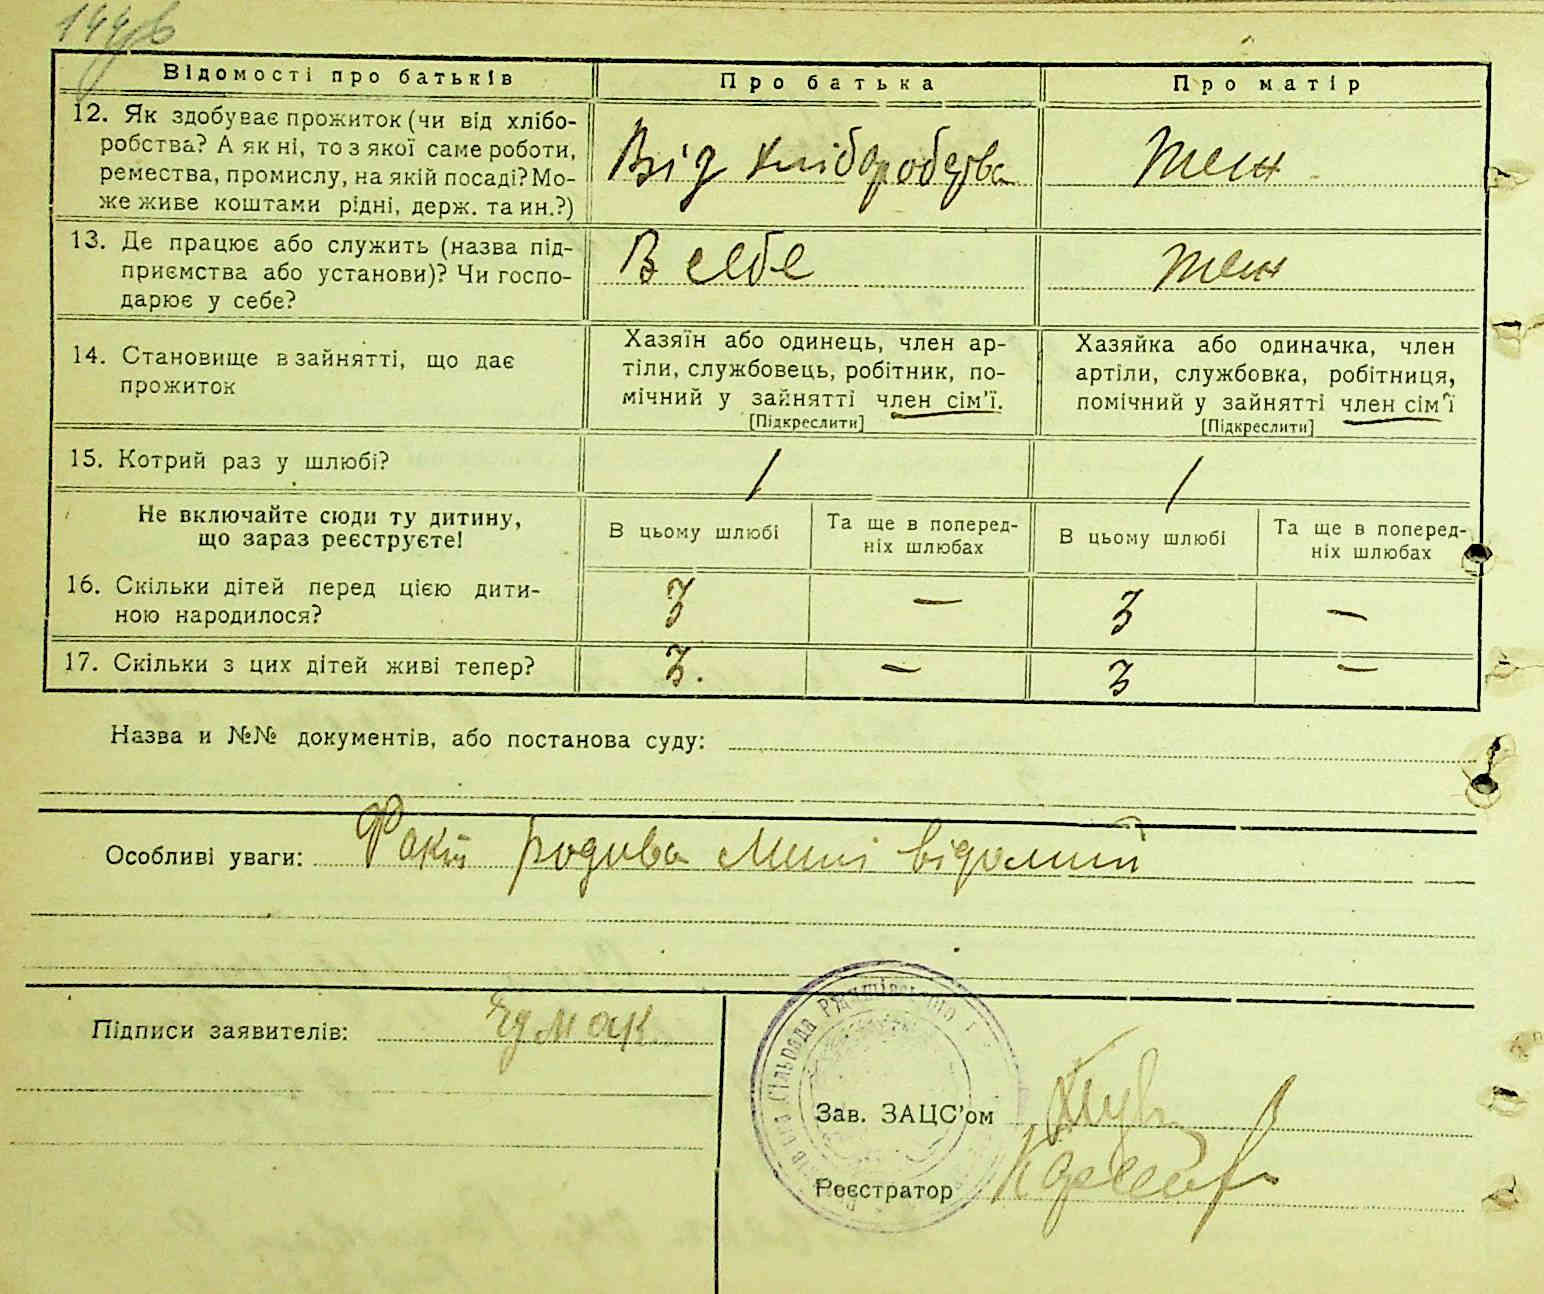 Відомості про батьків
Про батька
Про матір
12. Як здобуває прожиток (чи від хлібо-
робства? А як ні, то з якої саме роботи,
ремества, промислу, на якій посаді? Мо-
же живе коштами рідні, держ. та ин.?)
Від хліборобства
теж
13. Де працює або служить (назва під-
приємства або установи)? Чи госпо-
дарює у себе?
В себе
теж
14. Становище в зайнятті, що дає
прожиток
Хазяїн або одинець, член ар-
тіли, службовець, робітник, по-
мічний у зайнятті член сім'ї.
[Підкреслити]
Хазяйка або одиначка, член
артіли, службовка, робітниця,
помічний у зайнятті член сім'ї
[Підкреслити]
15. Котрий раз у шлюбі?
1
1
Не включайте сюди ту дитину,
що зараз реєструєте!
В цьому шлюбі
Та ще в поперед-
ніх шлюбах
В цьому шлюбі
Та ще в поперед-
ніх шлюбах
16. Скільки дітей перед цією дити-
ною народилося?
3
—
3
—
17. Скільки з цих дітей живі тепер?
3.
—
3
—
Назва и №№ документів, або постанова суду:
Особливі уваги: Факт родива мині відомий
Підписи заявителів:
Сільрада
Зав. ЗАЦС'ом
Реєстратор